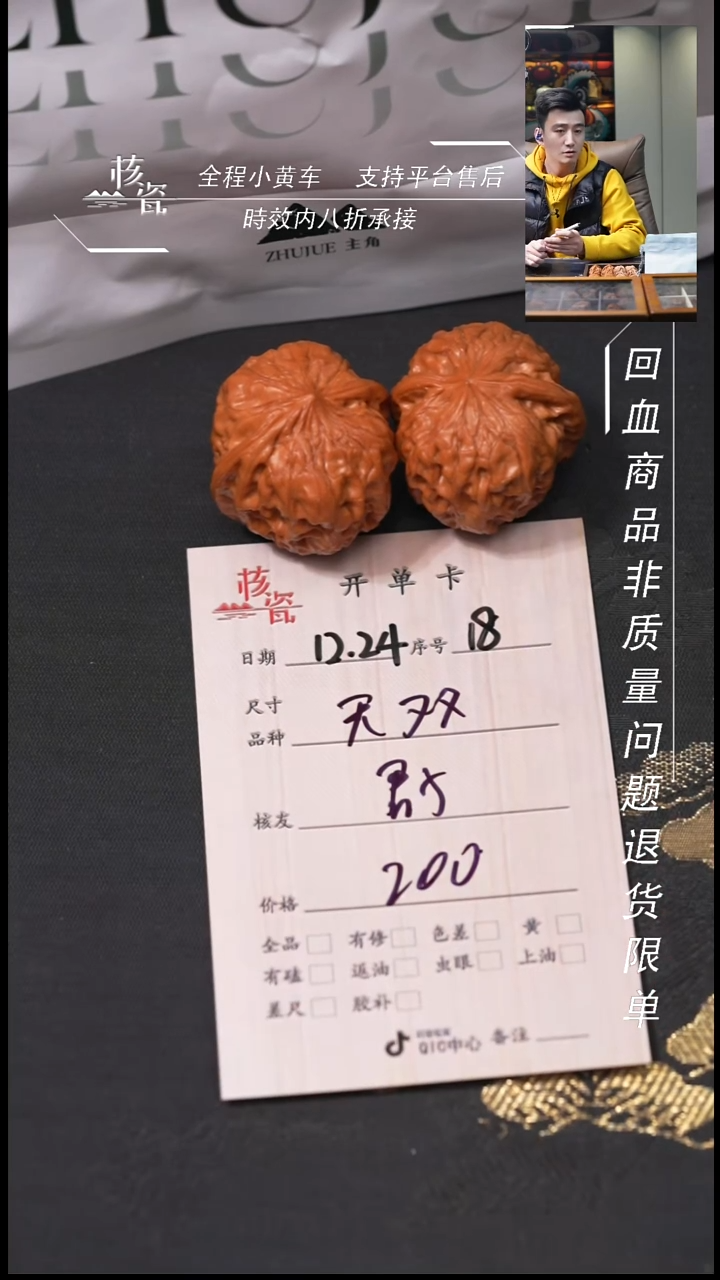 ZHUJUE
核瓷
全程小黄车 支持平台售后
時效内八折承接
ZHUJUE 主角
回血商品非质量问题退货限单
核瓷 开单卡
日期 12.24 序号 18
尺寸
品种 天双
核友
价格 200
全品 有修 色差 黄
有磕 返油 虫眼 上油
差尺 胶补
QIC中心 备注